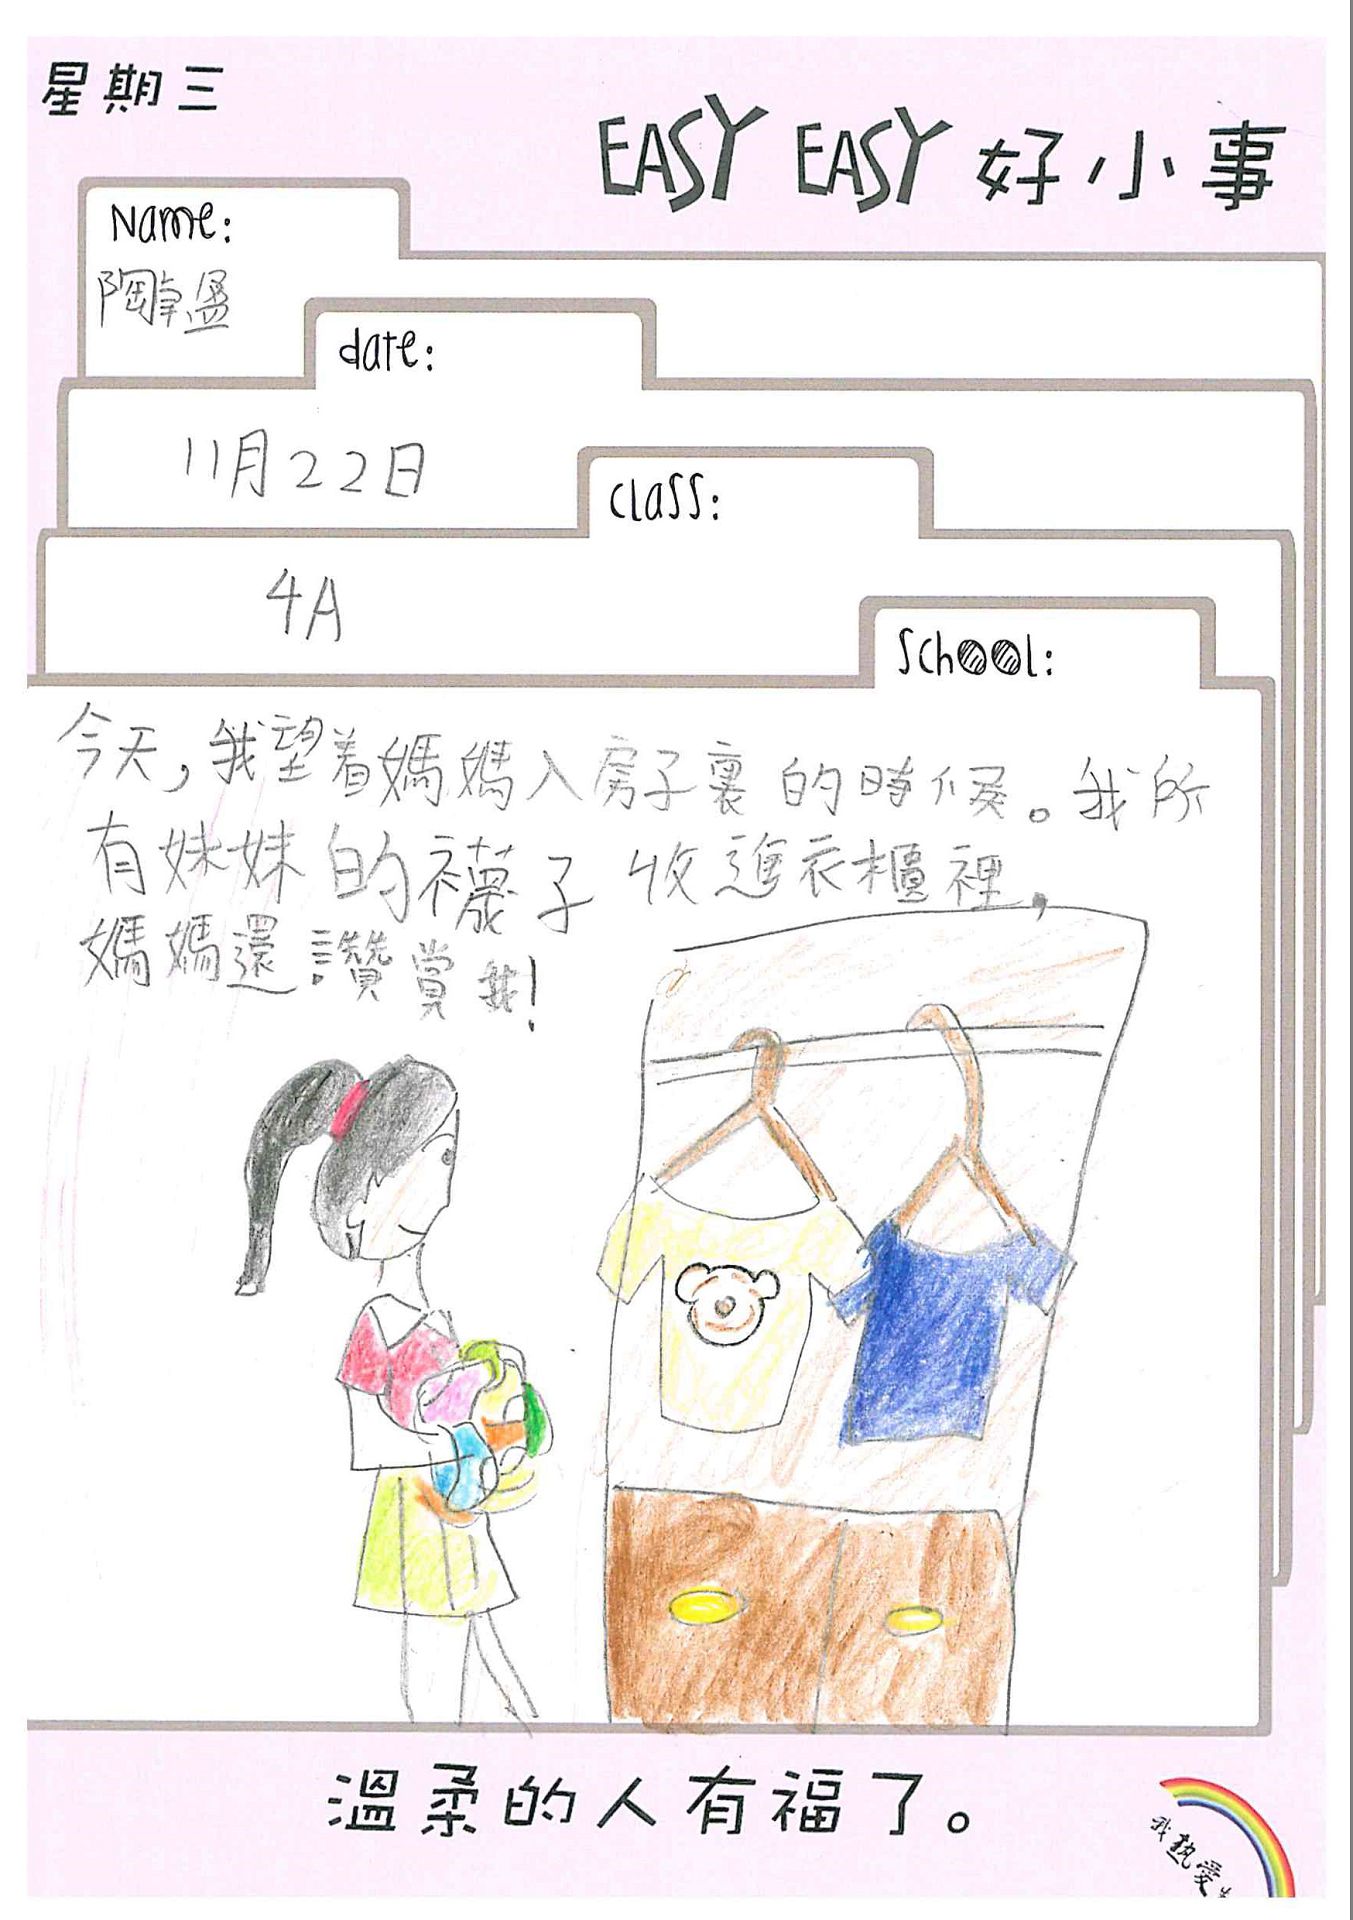 星期三
EASY EASY 好小事
Name:
陶卓盈
date:
11月22日
class:
4A
School:
今天,我望着媽媽入房子裏的時候。我所
有妹妹的襪子收進衣櫃裡,
媽媽還讚賞我!
溫柔的人有福了。
我熱愛